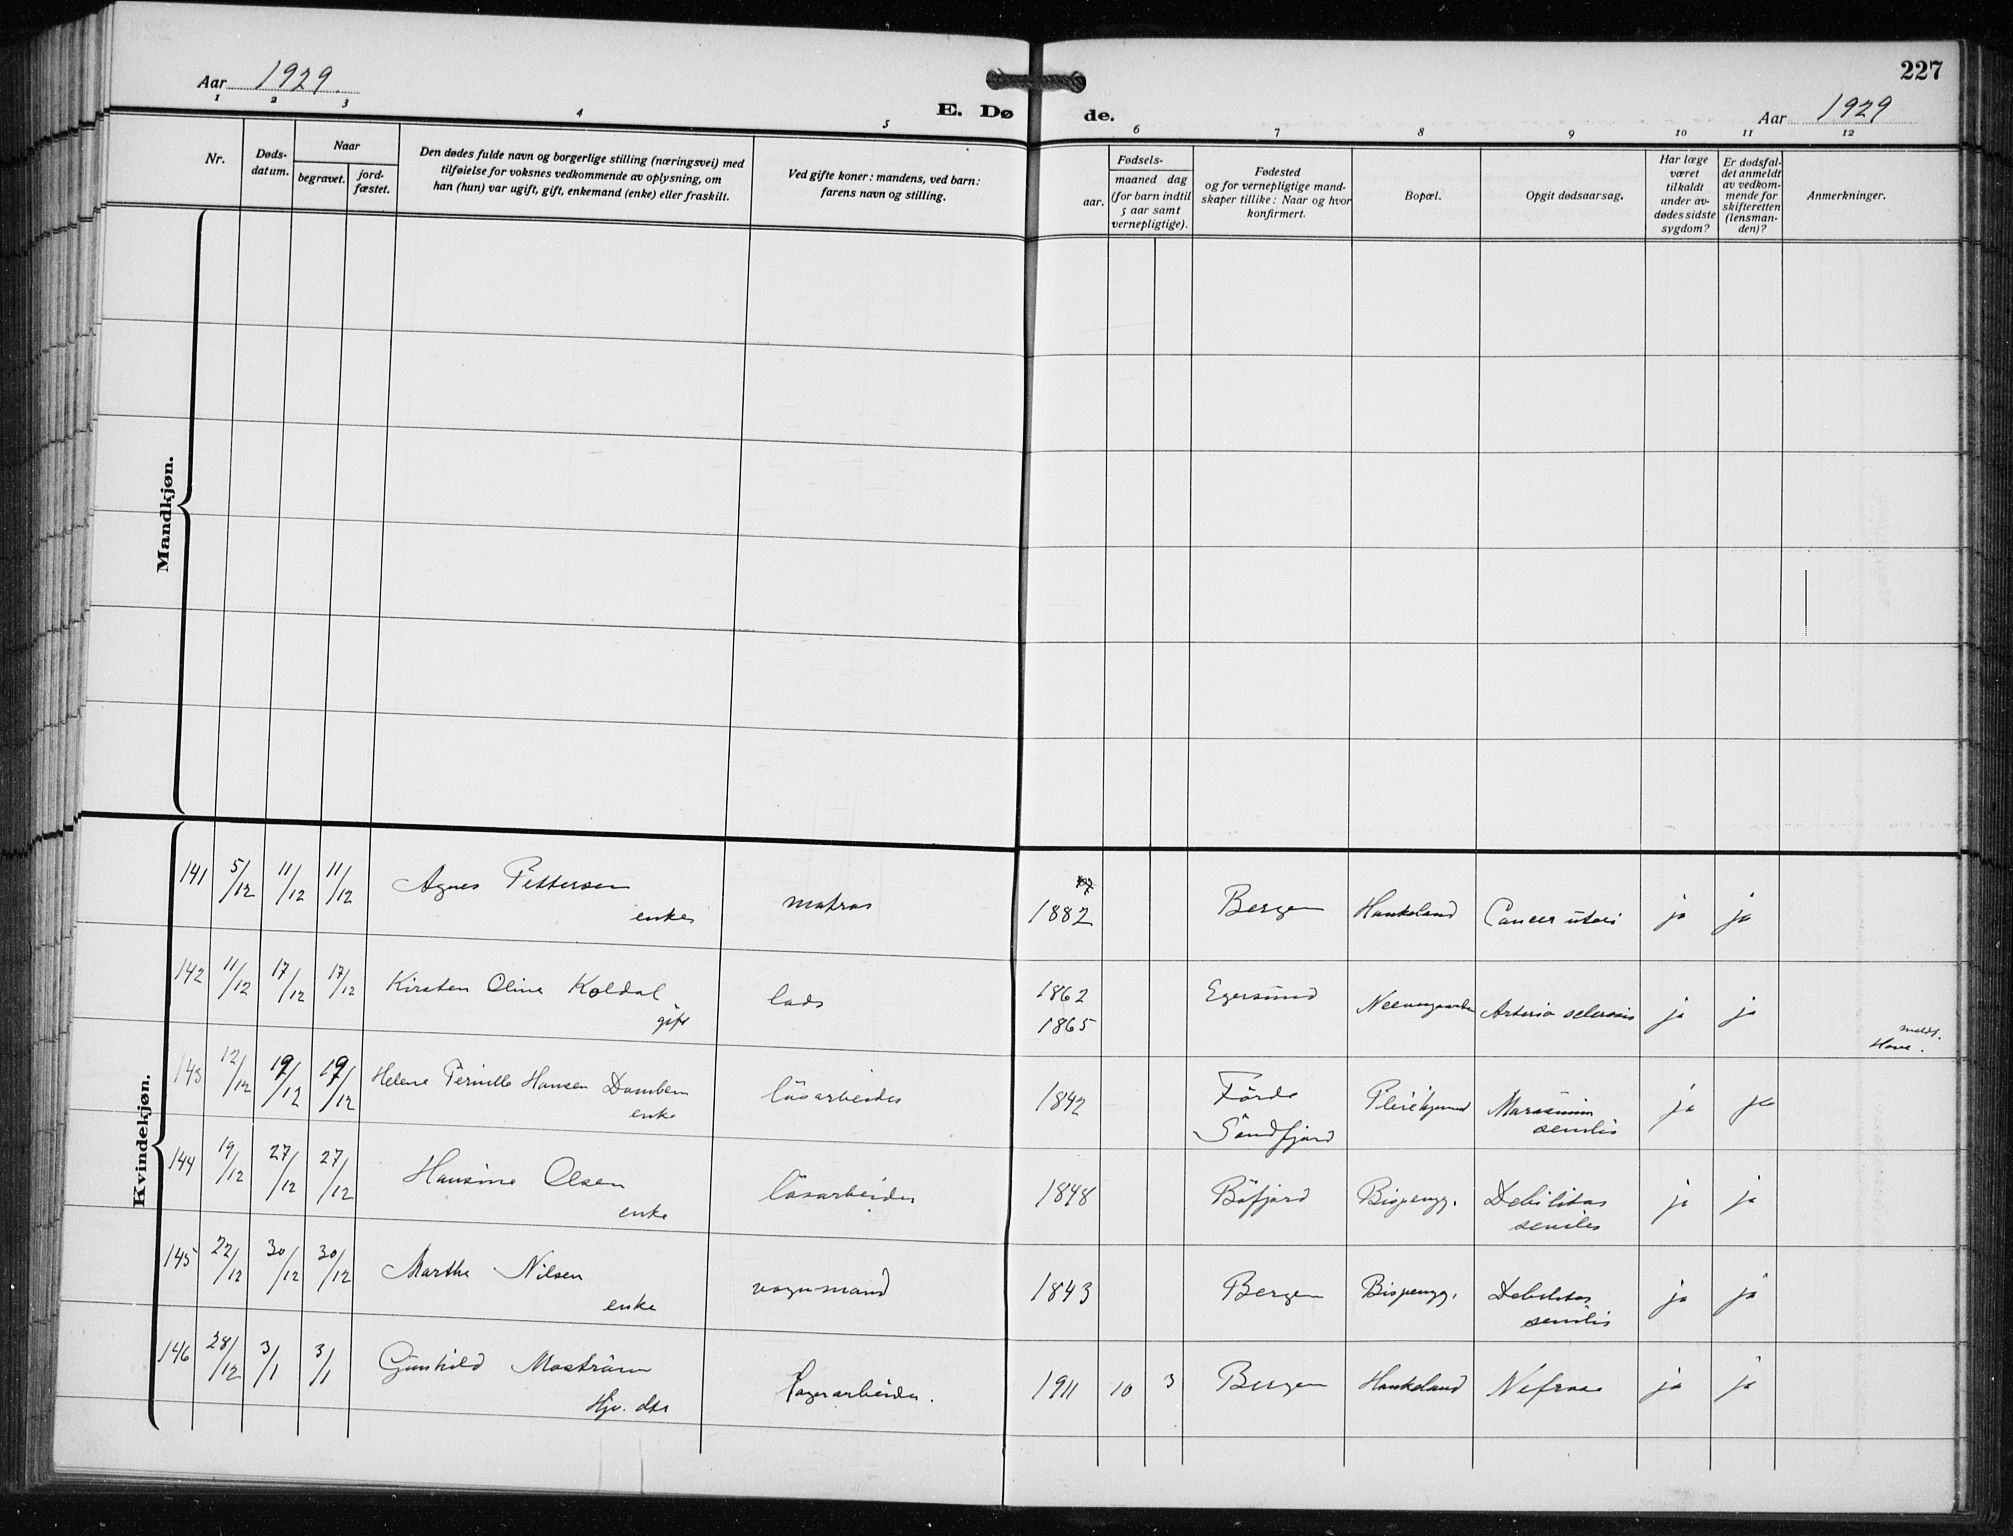 227
Aar 1929.
Aar 1929
E. Dø de.
1 2 3 4 5 6 7 8 9 10 11 12
Nr.
Døds-
datum.
Naar
begravet.
jord-
fæstet.
Den dødes fulde navn og borgerlige stilling (næringsvei) med
tilføielse for voksnes vedkommende av oplysning, om
han (hun) var ugift, gift, enkemand (enke) eller fraskilt.
Ved gifte koner: mandens, ved barn:
farens navn og stilling.
Fødsels-
aar.
maaned dag
(for barn indtil
5 aar samt
vernepligtige).
Fødested
og for vernepligtige mand-
skaper tillike: Naar og hvor
konfirmert.
Bopæl.
Opgit dødsaarsag.
Har læge
været
tilkaldt
under av-
dødes sidste
sygdom?
Er dødsfal-
det anmeldt
av vedkom-
mende for
skifteretten
(lensman-
den)?
Anmerkninger.
Mandkjøn.
Kvindekjøn.
141 5/12 11/12 11/12 Agnes Pettersen
enke matros 1882 Bergen Haukeland Cancer uteri ja ja
142 11/12 17/12 17/12 Kirsten Oline Koldal
gift lods 1862 Egersund Arterio sclerosis ja ja
1865
143 12/12 19/12 19/12 Helene Pernille Hansen
enke løsarbeider 1842 Førde
Søndfjord Pleiehjemmet Marasmus
senilis ja ja
144 19/12 27/12 27/12 Hansine Olsen
enke løsarbeider 1848 Bøfjord Bispengg. Debilitas
senilis ja ja
145 22/12 30/12 30/12 Marthe Nilsen
enke vognmand 1843 Bergen Bispengg. Debilitas
senilis ja ja
146 28/12 3/1 3/1 Gunhild Mostrøm
Hjv. dtr lagerarbeider. 1911 10 3 Bergen Haukeland ja ja